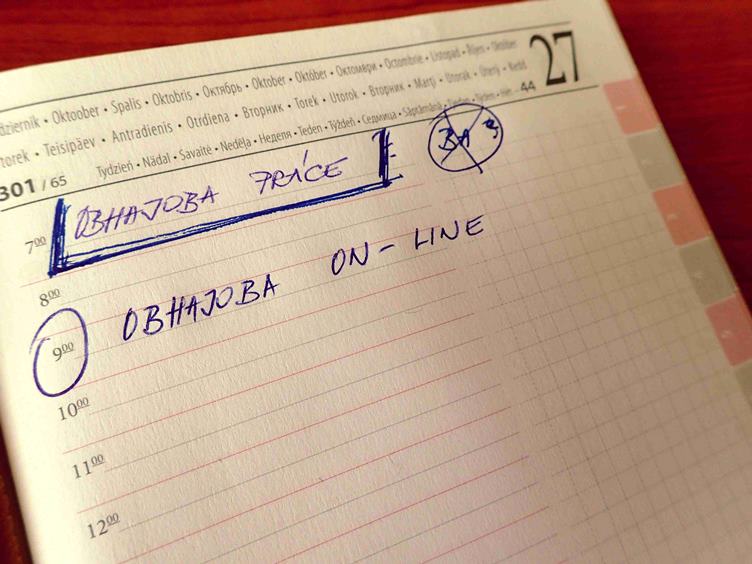 dziernik • Oktoober • Spalis • Oktobris • Октябрь • Oktober • Október • Октомври • Octombrie • Listopad • Říjen • Október
27
torek • Teisipäev • Antradienis • Otrdiena • Вторник • Torek • Utorok • Вторник • Marţi • Utorak • Úterý • Kedd
Tydzień • Nädal • Savaitė • Nedēļa • Неделя • Teden • Týždeň • Седмица • Săptămână • Tjedan • Týden • Hét 44
301 / 65
BA
OBHAJOBA PRÁCE
7 00
8 00
OBHAJOBA ON-LINE
9 00
10 00
11 00
12 00